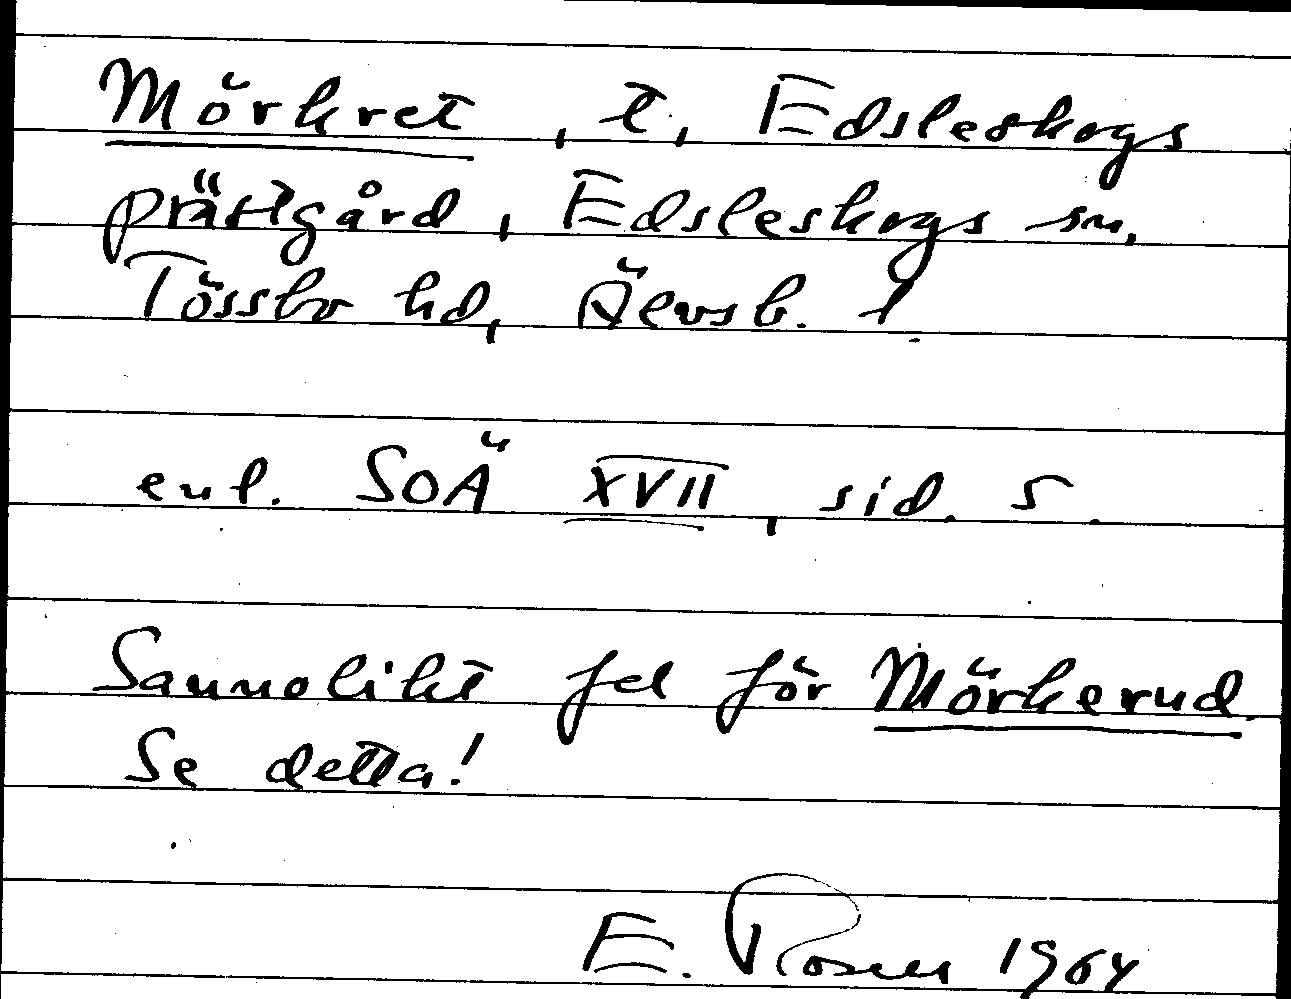 Mörkret, t, Edsleskogs
prästgård, Edsleskogs sn,
Tössbo hd, Älvsb. l.
enl. SOÄ XVII, sid. 5.
Sannolikt fel för Mörkerud.
Se detta!
E. Rosell 1964